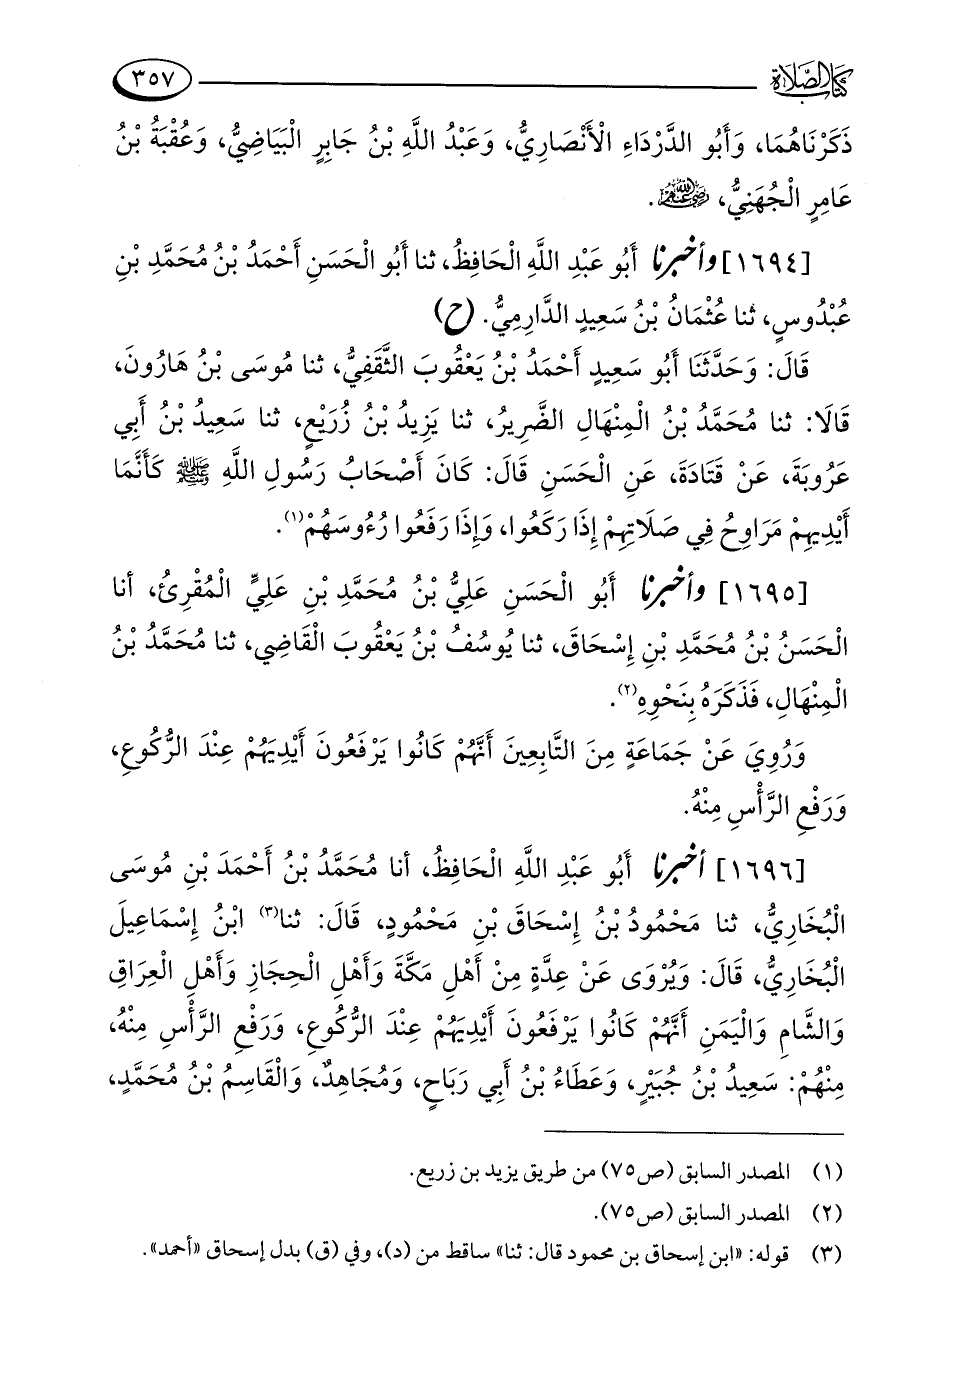 كتاب الصلاة
٣٥٧
ذَكَرْنَاهُمَا، وَأَبُو الدَّرْدَاءِ الْأَنْصَارِيُّ، وَعَبْدُ اللَّهِ بْنُ جَابِرٍ الْبَيَاضِيُّ، وَعُقْبَةُ بْنُ
عَامِرٍ الْجُهَنِيُّ، رضي الله عنهم.
[١٦٩٤] وأخبرنا أَبُو عَبْدِ اللَّهِ الْحَافِظُ، ثنا أَبُو الْحَسَنِ أَحْمَدُ بْنُ مُحَمَّدِ بْنِ
عُبْدُوسٍ، ثنا عُثْمَانُ بْنُ سَعِيدٍ الدَّارِمِيُّ. (ح)
قَالَ: وَحَدَّثَنَا أَبُو سَعِيدٍ أَحْمَدُ بْنُ يَعْقُوبَ الثَّقَفِيُّ، ثنا مُوسَى بْنُ هَارُونَ،
قَالَا: ثنا مُحَمَّدُ بْنُ الْمِنْهَالِ الضَّرِيرُ، ثنا يَزِيدُ بْنُ زُرَيْعٍ، ثنا سَعِيدُ بْنُ أَبِي
عَرُوبَةَ، عَنْ قَتَادَةَ، عَنِ الْحَسَنِ قَالَ: كَانَ أَصْحَابُ رَسُولِ اللَّهِ ﷺ كَأَنَّمَا
أَيْدِيهِمْ مَرَاوِحُ فِي صَلَاتِهِمْ إِذَا رَكَعُوا، وَإِذَا رَفَعُوا رُءُوسَهُمْ(١).
[١٦٩٥] وأخبرنا أَبُو الْحَسَنِ عَلِيُّ بْنُ مُحَمَّدِ بْنِ عَلِيٍّ الْمُقْرِئُ، أنا
الْحَسَنُ بْنُ مُحَمَّدِ بْنِ إِسْحَاقَ، ثنا يُوسُفُ بْنُ يَعْقُوبَ الْقَاضِي، ثنا مُحَمَّدُ بْنُ
الْمِنْهَالِ، فَذَكَرَهُ بِنَحْوِهِ(٢).
وَرُوِيَ عَنْ جَمَاعَةٍ مِنَ التَّابِعِينَ أَنَّهُمْ كَانُوا يَرْفَعُونَ أَيْدِيَهُمْ عِنْدَ الرُّكُوعِ،
وَرَفْعِ الرَّأْسِ مِنْهُ.
[١٦٩٦] أخبرنا أَبُو عَبْدِ اللَّهِ الْحَافِظُ، أنا مُحَمَّدُ بْنُ أَحْمَدَ بْنِ مُوسَى
الْبُخَارِيُّ، ثنا مَحْمُودُ بْنُ إِسْحَاقَ بْنِ مَحْمُودٍ، قَالَ: ثنا(٣) ابْنُ إِسْمَاعِيلَ
الْبُخَارِيُّ، قَالَ: وَيُرْوَى عَنْ عِدَّةٍ مِنْ أَهْلِ مَكَّةَ وَأَهْلِ الْحِجَازِ وَأَهْلِ الْعِرَاقِ
وَالشَّامِ وَالْيَمَنِ أَنَّهُمْ كَانُوا يَرْفَعُونَ أَيْدِيَهُمْ عِنْدَ الرُّكُوعِ، وَرَفْعِ الرَّأْسِ مِنْهُ،
مِنْهُمْ: سَعِيدُ بْنُ جُبَيْرٍ، وَعَطَاءُ بْنُ أَبِي رَبَاحٍ، وَمُجَاهِدٌ، وَالْقَاسِمُ بْنُ مُحَمَّدٍ،
(١) المصدر السابق (ص٧٥) من طريق يزيد بن زريع.
(٢) المصدر السابق (ص٧٥).
(٣) قوله: «ابن إسحاق بن محمود قال: ثنا» ساقط من (د)، وفي (ق) بدل إسحاق «أحمد».